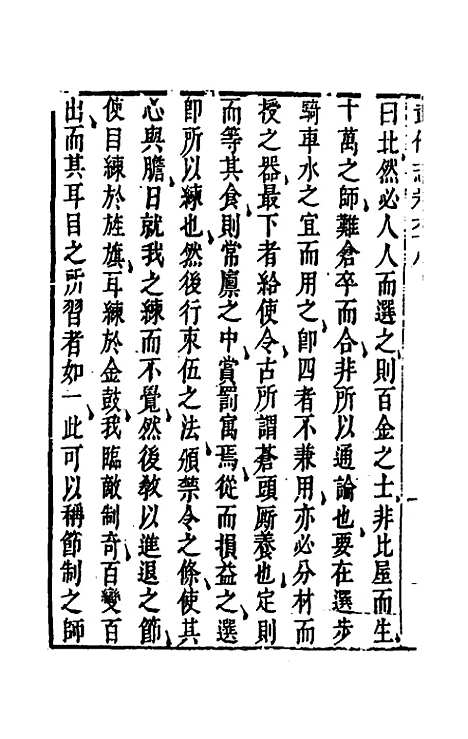 曰北然必人人而選之則百金之士非比屋而生
十萬之師難倉卒而合非所以通論也要在選步
騎車水之宜而用之卽四者不兼用亦必分材而
授之器最下者給使令古所謂蒼頭厮養也定則
而等其食則常廪之中賞罰寓焉從而損益之選
卽所以練也然後行束伍之法頒禁令之條使其
心與膽日就我之練而不覺然後敎以進退之節
使目練於旌旗耳練於金鼓我臨敵制奇百變百
出而其耳目之所習者如一此可以稱節制之師